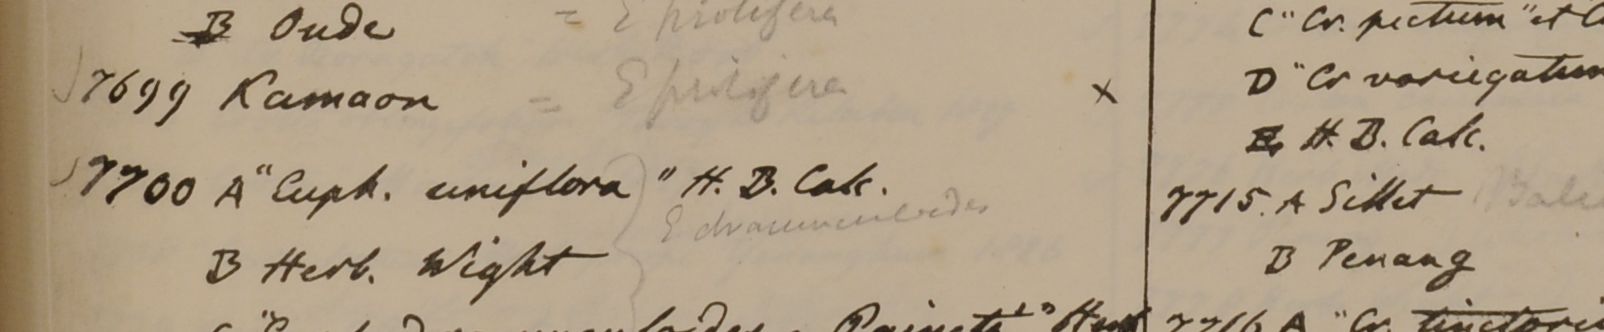 B Oude = E prolifera
7699 Kamaon = E prolifera ×
7700 A "Euph. uniflora" H. B. Calc.
E dracunculoides
B Herb. Wight
C "Cr. pictum" et
D "Cr variegatum
E H. B. Calc.
7715. A Sillet
B Penang
7716 A "Cr. tinctori